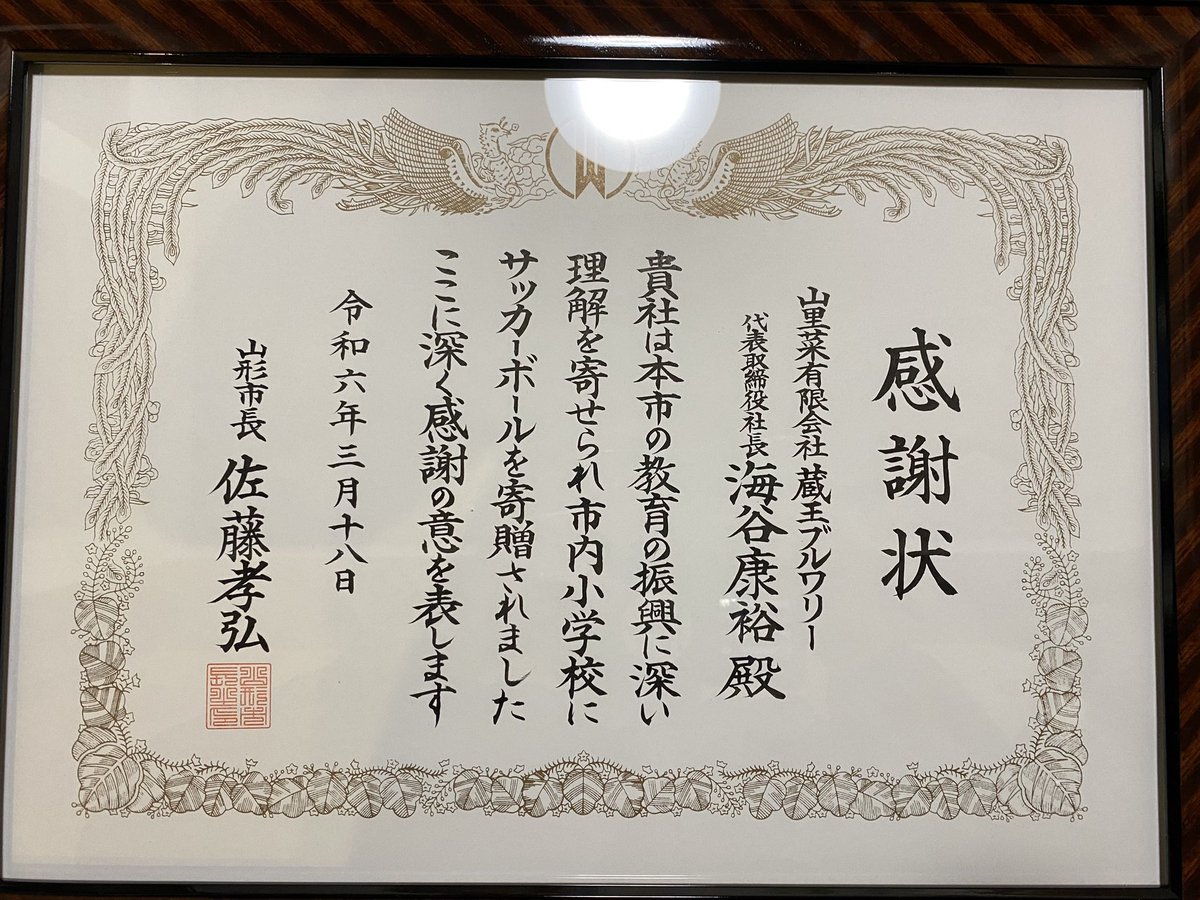 感謝状
山里菜有限会社 蔵王ブルワリー
代表取締役社長 海谷康裕 殿
貴社は本市の教育の振興に深い
理解を寄せられ市内小学校に
サッカーボールを寄贈されました
ここに深く感謝の意を表します
令和六年三月十八日
山形市長 佐藤孝弘
山形市長之印